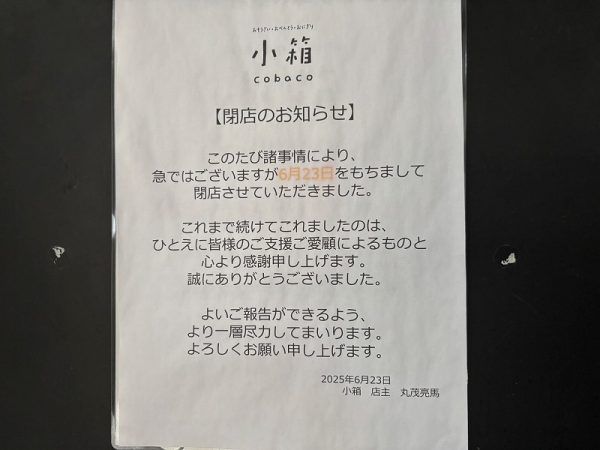 おそうざい・おべんとう・おにぎり
小箱
cobaco
【閉店のお知らせ】
このたび諸事情により、
急ではございますが6月23日をもちまして
閉店させていただきました。
これまで続けてこれましたのは、
ひとえに皆様のご支援ご愛顧によるものと
心より感謝申し上げます。
誠にありがとうございました。
よいご報告ができるよう、
より一層尽力してまいります。
よろしくお願い申し上げます。
2025年6月23日
小箱 店主 丸茂亮馬